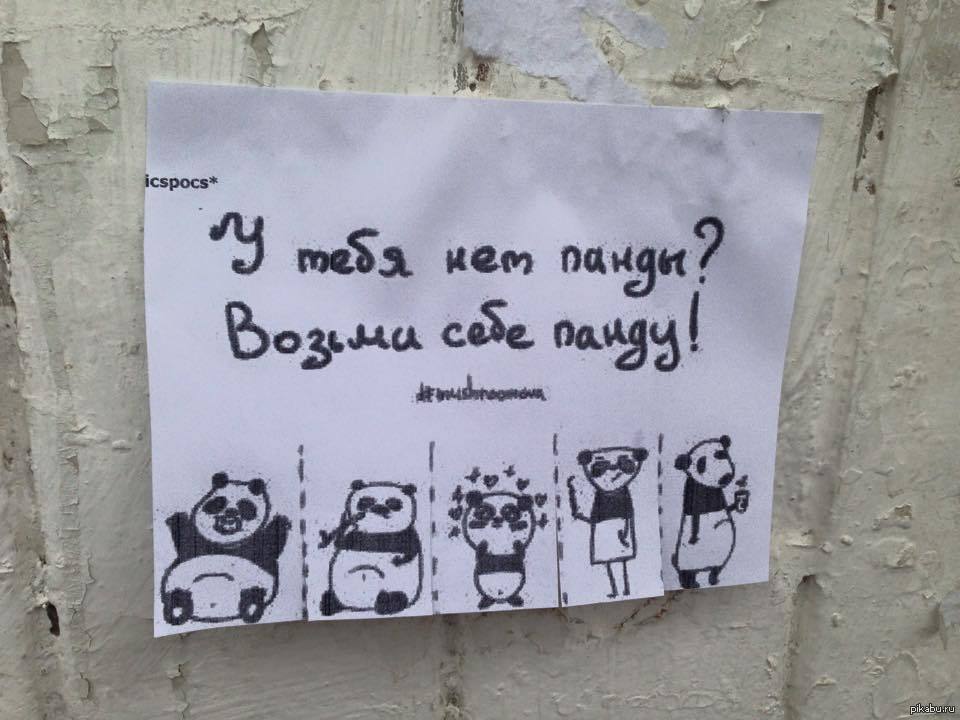 icspocs*
У тебя нет панды?
Возьми себе панду!
pikabu.ru